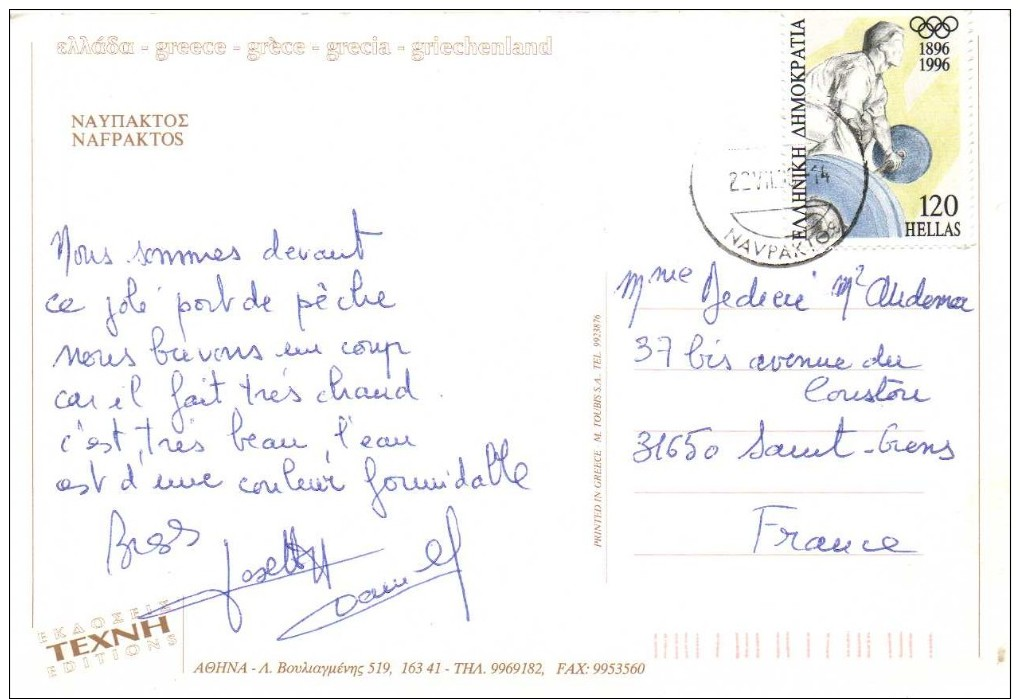 ελλάδα - greece - grèce - grecia - griechenland
ΝΑΥΠΑΚΤΟΣ
NAFPAKTOS
ΕΛΛΗΝΙΚΗ ΔΗΜΟΚΡΑΤΙΑ
1896
1996
120
HELLAS
NAVPAKTOS
Nous sommes devant
ce joli port de pêche
nous buvons un coup
car il fait très chaud.
c'est très beau, l'eau
est d'une couleur formidable
Bises
Josette
Daniel
Mme
37 bis avenue du
Coustou
31650 Saint-Orens
France
PRINTED IN GREECE M. TOUBIS S.A. TEL. 9923876
ΕΚΔΟΣΕΙΣ
ΤΕΧΝΗ
EDITIONS
ΑΘΗΝΑ - Λ. Βουλιαγμένης 519, 163 41 - ΤΗΛ. 9969182, FAX: 9953560